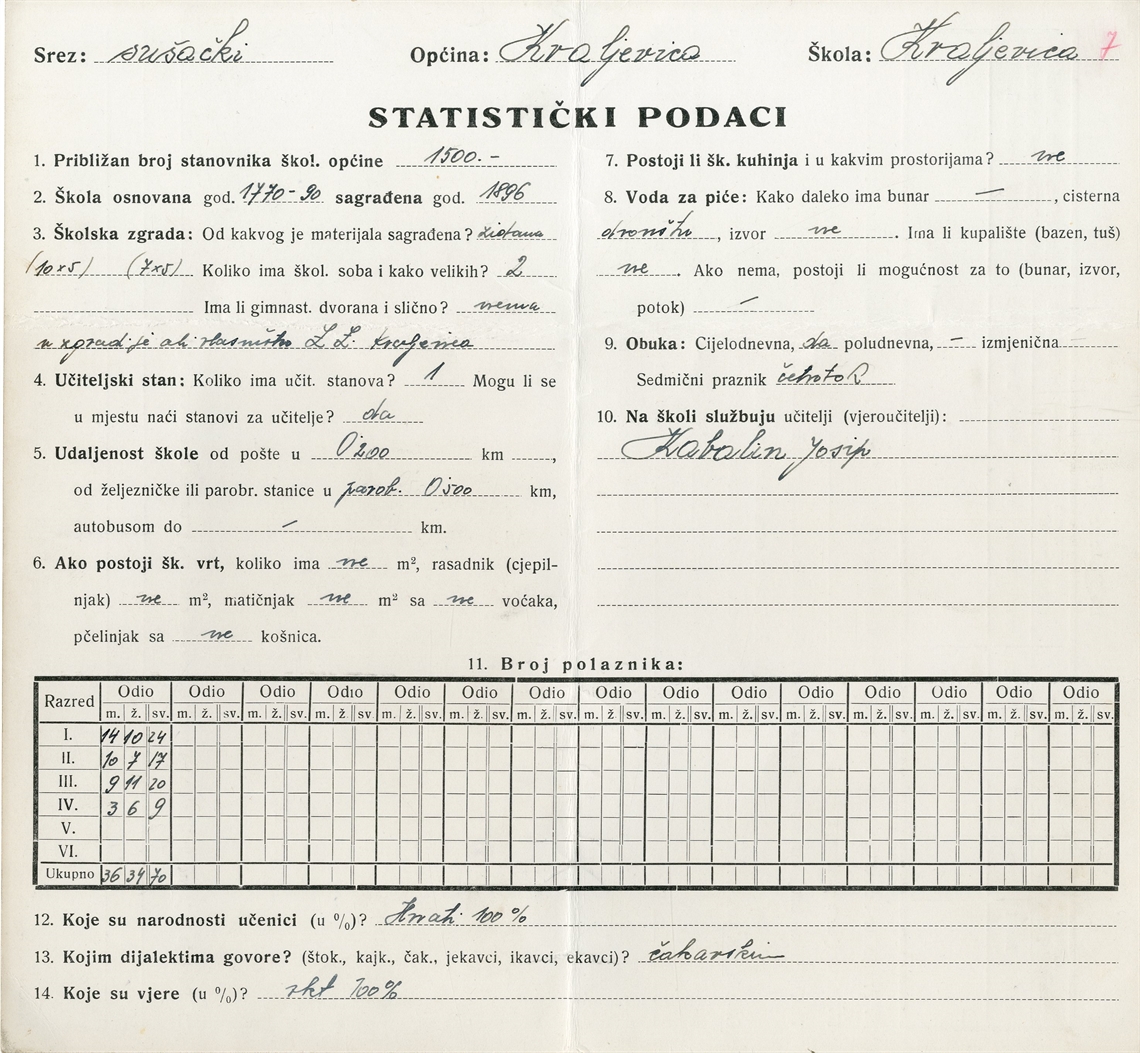 Srez: sušački Općina: Kraljevica Škola: Kraljevica 7
STATISTIČKI PODACI
1. Približan broj stanovnika škol. općine 1500.-
2. Škola osnovana god. 1770-90 sagrađena god. 1896
3. Školska zgrada: Od kakvog je materijala sagrađena? zidana
(10x5) (7x5) Koliko ima škol. soba i kako velikih? 2
Ima li gimnast. dvorana i slično? nema
u zgradi je ali vlasništvo Kraljevica
4. Učiteljski stan: Koliko ima učit. stanova? 1 Mogu li se
u mjestu naći stanovi za učitelje? da
5. Udaljenost škole od pošte u 0'200 km ,
od željezničke ili parobr. stanice u parob. 0'500 km,
autobusom do — km.
6. Ako postoji šk. vrt, koliko ima ne m², rasadnik (cjepil-
njak) ne m², matičnjak ne m² sa ne voćaka,
pčelinjak sa ne košnica.
7. Postoji li šk. kuhinja i u kakvim prostorijama? ne
8. Voda za piće: Kako daleko ima bunar — , cisterna
, izvor ne . Ima li kupalište (bazen, tuš)
ne . Ako nema, postoji li mogućnost za to (bunar, izvor,
potok) —
9. Obuka: Cijelodnevna, da poludnevna, — izmjenična —
Sedmični praznik četvrtak
10. Na školi službuju učitelji (vjeroučitelji):
Kabalin Josip
11. Broj polaznika:
Razred Odio Odio Odio Odio Odio Odio Odio Odio Odio Odio Odio Odio Odio Odio Odio
m. ž. sv. m. ž. sv. m. ž. sv. m. ž sv. m. ž. sv. m. ž. sv. m. ž. sv. m. ž. sv. m. ž. sv. m. ž. sv. m. ž. sv. m. ž. sv. m. ž. sv. m. ž. sv. m. ž. sv.
I. 14 10 24
II. 10 7 17
III. 9 11 20
IV. 3 6 9
V.
VI.
Ukupno 36 34 70
12. Koje su narodnosti učenici (u %)? Hrvati 100%
13. Kojim dijalektima govore? (štok., kajk., čak., jekavci, ikavci, ekavci)? čakavskim
14. Koje su vjere (u %)? rkt 100%